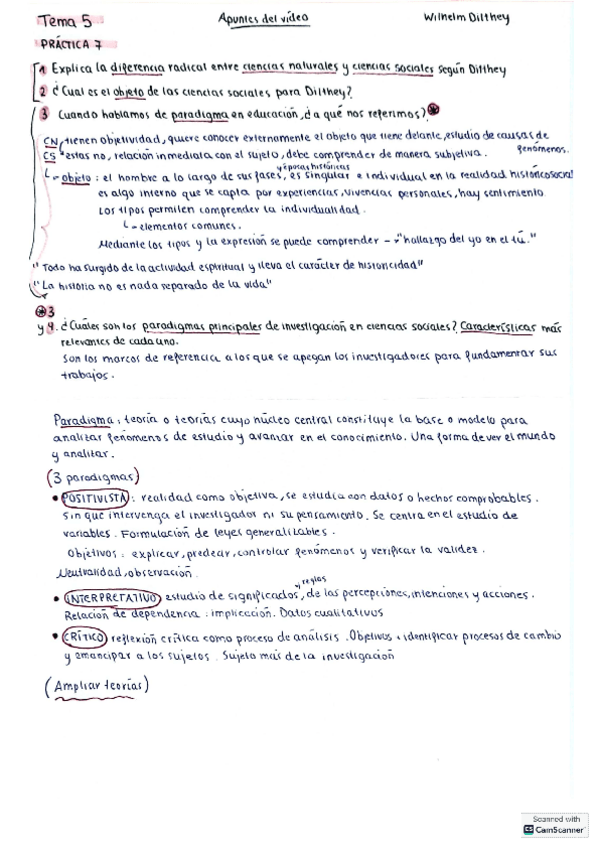 Tema 5
Apuntes del vídeo
Wilhelm Dilthey
PRÁCTICA 7
1 Explica la diferencia radical entre ciencias naturales y ciencias sociales según Dilthey
2 ¿Cual es el objeto de las ciencias sociales para Dilthey?
3 Cuando hablamos de paradigma en educación, ¿a qué nos referimos? *
CN, tienen objetividad, quiere conocer externamente el objeto que tiene delante, estudio de causas de fenómenos.
CS estas no, relación inmediata con el sujeto, debe comprender de manera subjetiva.
y épocas históricas
objeto: el hombre a lo largo de sus fases, es singular e individual en la realidad histórico social
es algo interno que se capta por experiencias, vivencias personales, hay sentimiento
Los tipos permiten comprender la individualidad.
elementos comunes.
Mediante los tipos y la expresión se puede comprender → "hallazgo del yo en el tú."
"Todo ha surgido de la actividad espiritual y lleva el carácter de historicidad"
"La historia no es nada separado de la vida"
*3
y 4. ¿Cuáles son los paradigmas principales de investigación en ciencias sociales? Características más
relevantes de cada uno.
Son los marcos de referencia a los que se apegan los investigadores para fundamentar sus
trabajos.
Paradigma: teoría o teorías cuyo núcleo central constituye la base o modelo para
analizar fenómenos de estudio y avanzar en el conocimiento. Una forma de ver el mundo
y analizar.
(3 paradigmas)
• POSITIVISTA: realidad como objetiva, se estudia con datos o hechos comprobables.
Sin que intervenga el investigador ni su pensamiento. Se centra en el estudio de
variables. Formulación de leyes generalizables.
Objetivos: explicar, predecir, controlar fenómenos y verificar la validez.
Neutralidad, observación.
y reglas
• INTERPRETATIVO estudio de significados, de las percepciones, intenciones y acciones.
Relación de dependencia: implicación. Datos cualitativos
• CRÍTICO reflexión crítica como proceso de análisis. Objetivos: identificar procesos de cambio
y emancipar a los sujetos. Sujeto más de la investigación
(Ampliar teorías)
Scanned with
CamScanner